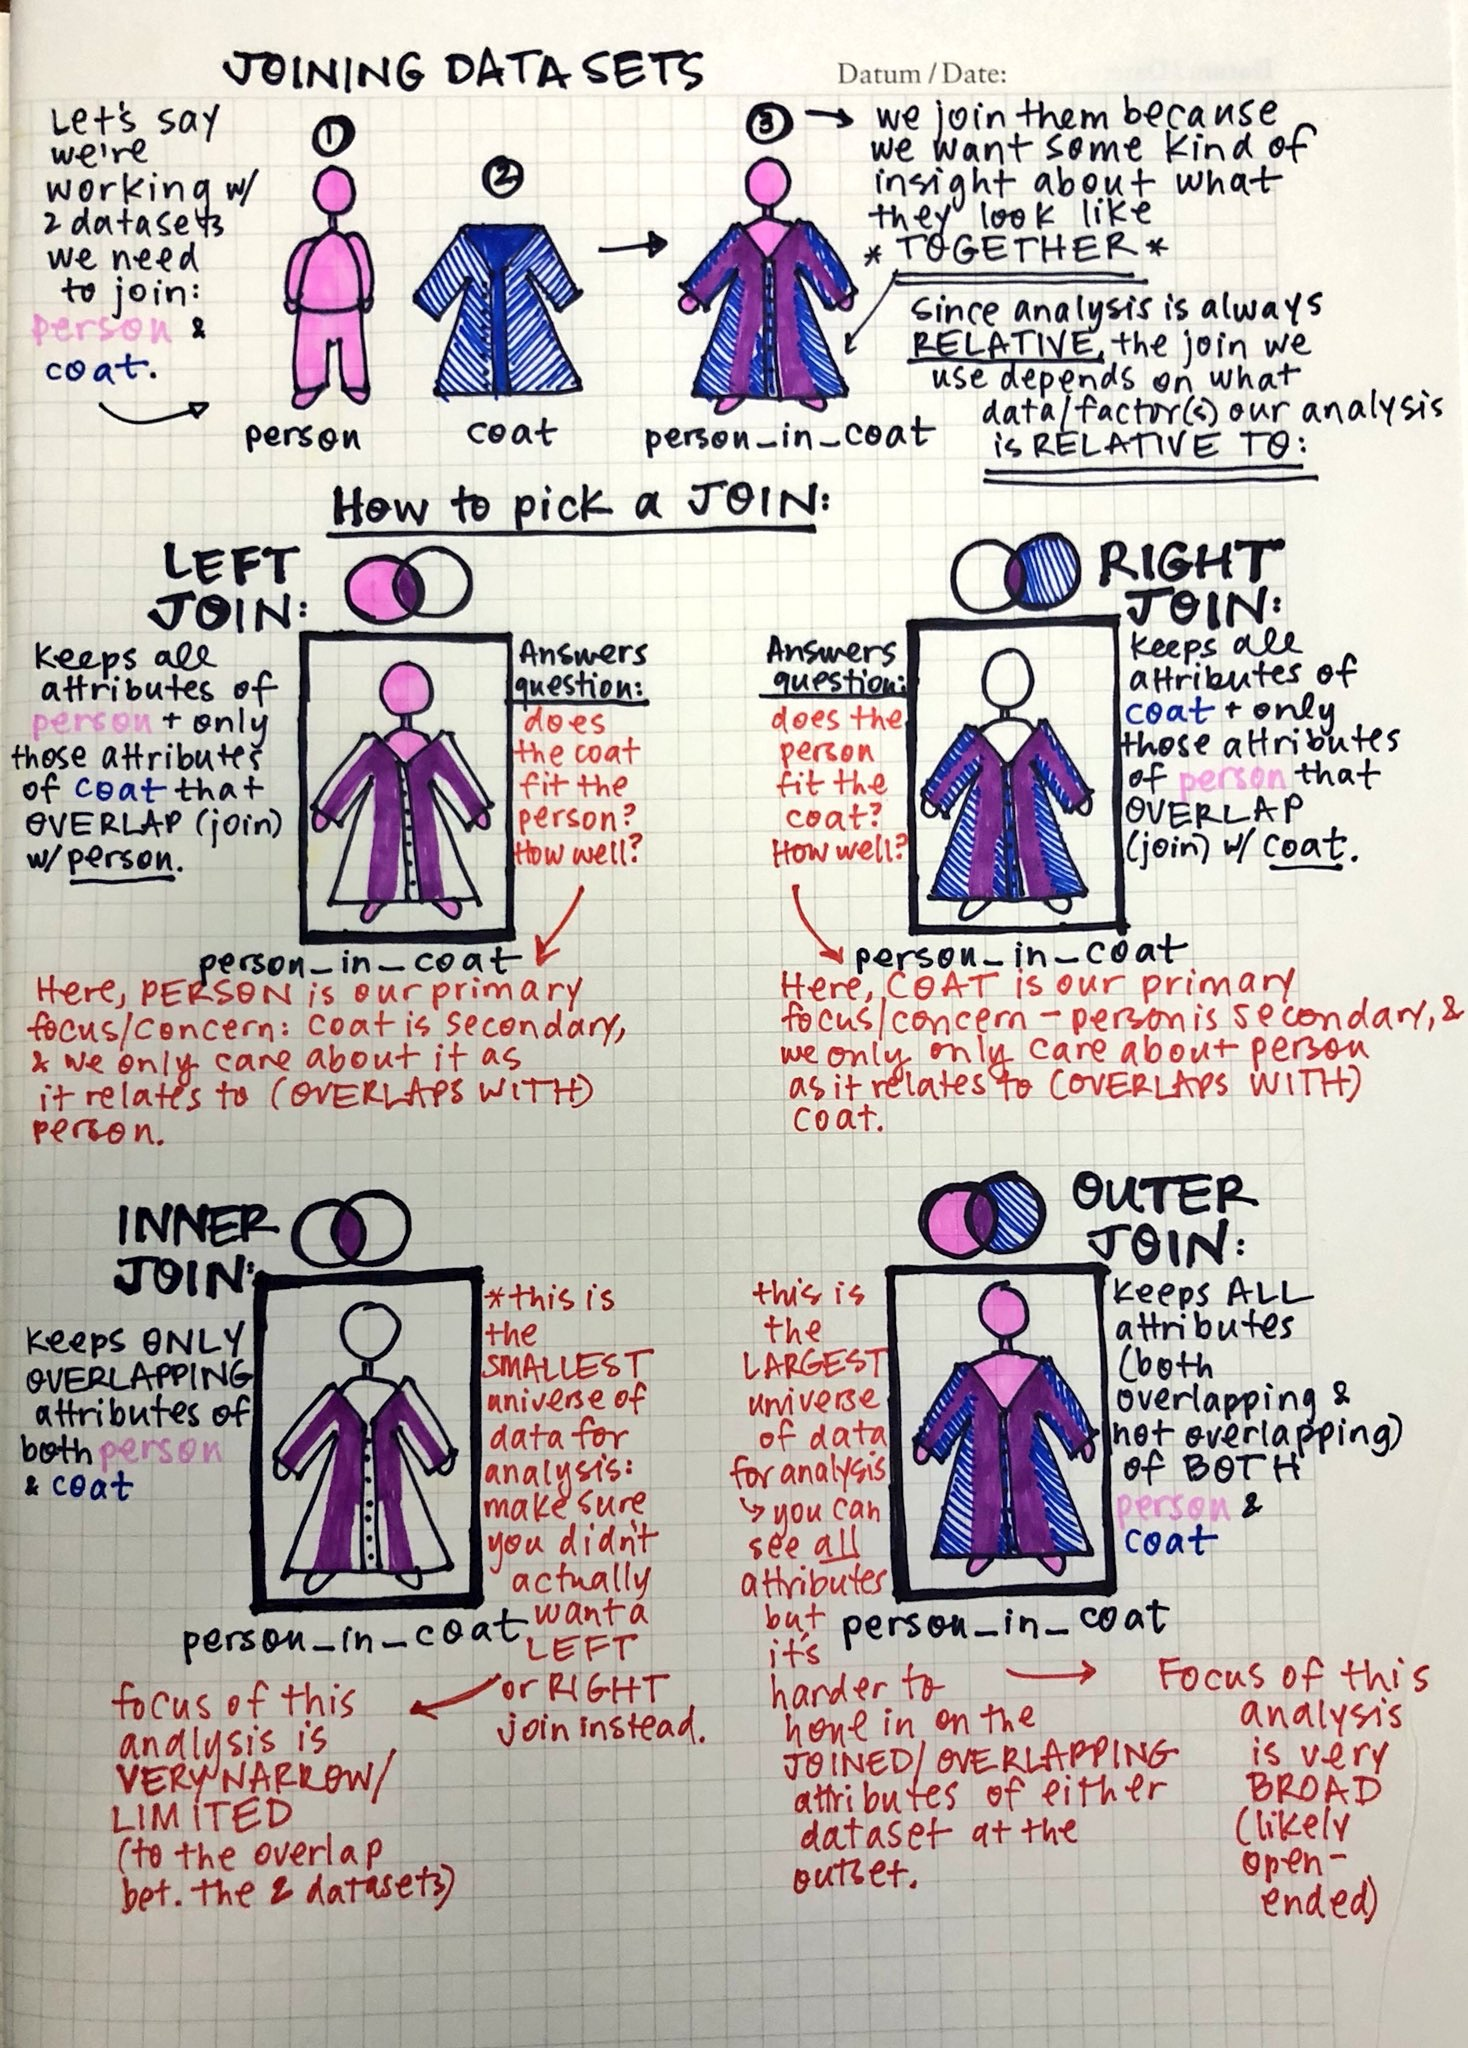 JOINING DATA SETS
Datum / Date:
Let's say
we're
working w/
2 datasets
we need
to join:
person &
coat.
1
person
2
coat
3
person_in_coat
we join them because
we want some kind of
insight about what
they look like
* TOGETHER *
Since analysis is always
RELATIVE, the join we
use depends on what
data/factor(s) our analysis
is RELATIVE TO:
How to pick a JOIN:
LEFT
JOIN:
Keeps all
attributes of
person + only
those attributes
of coat that
OVERLAP (join)
w/ person.
Answers
question:
does
the coat
fit the
person?
How well?
person_in_coat
Here, PERSON is our primary
focus/concern: coat is secondary,
& we only care about it as
it relates to (OVERLAPS WITH)
person.
RIGHT
JOIN:
Keeps all
attributes of
coat + only
those attributes
of person that
OVERLAP
(join) w/ coat.
Answers
question:
does the
person
fit the
coat?
How well?
person_in_coat
Here, COAT is our primary
focus/concern - person is secondary, &
we only only care about person
as it relates to (OVERLAPS WITH)
coat.
INNER
JOIN:
Keeps ONLY
OVERLAPPING
attributes of
both person
& coat
*this is
the
SMALLEST
universe of
data for
analysis:
make sure
you didn't
actually
want a
LEFT
or RIGHT
join instead.
person_in_coat
focus of this
analysis is
VERY NARROW/
LIMITED
(to the overlap
bet. the 2 datasets)
OUTER
JOIN:
Keeps ALL
attributes
(both
overlapping &
not overlapping)
of BOTH
person &
coat
this is
the
LARGEST
universe
of data
for analysis
↳ you can
see all
attributes
but
it's
harder to
hone in on the
JOINED/OVERLAPPING
attributes of either
dataset at the
outset.
person_in_coat
Focus of this
analysis
is very
BROAD
(likely
open-
ended)